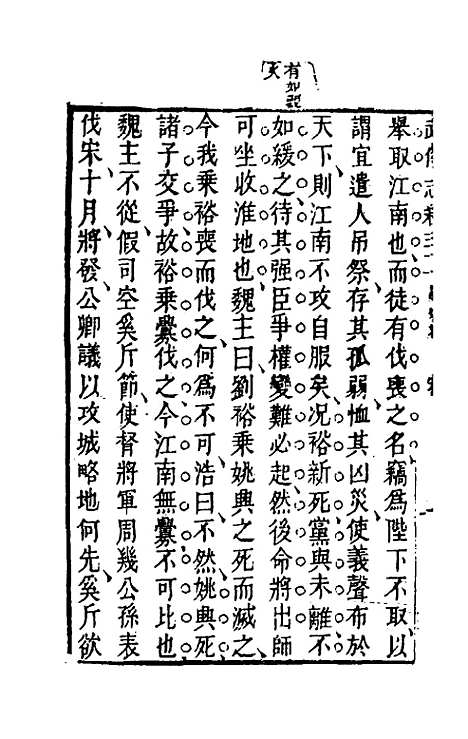 有如發
舉取江南也而徒有伐喪之名竊為陛下不取以
謂宜遣人吊祭存其孤弱恤其凶災使義聲布於
天下則江南不攻自服矣况裕新死黨與未離不
如緩之待其强臣爭權變難必起然後命將出師
可坐收淮地也魏主曰劉裕乗姚興之死而滅之
今我乗裕喪而伐之何為不可浩曰不然姚興死
諸子交爭故裕乗釁伐之今江南無釁不可比也
魏主不從假司空奚斤節使督將軍周幾公孫表
伐宋十月將發公卿議以攻城略地何先奚斤欲